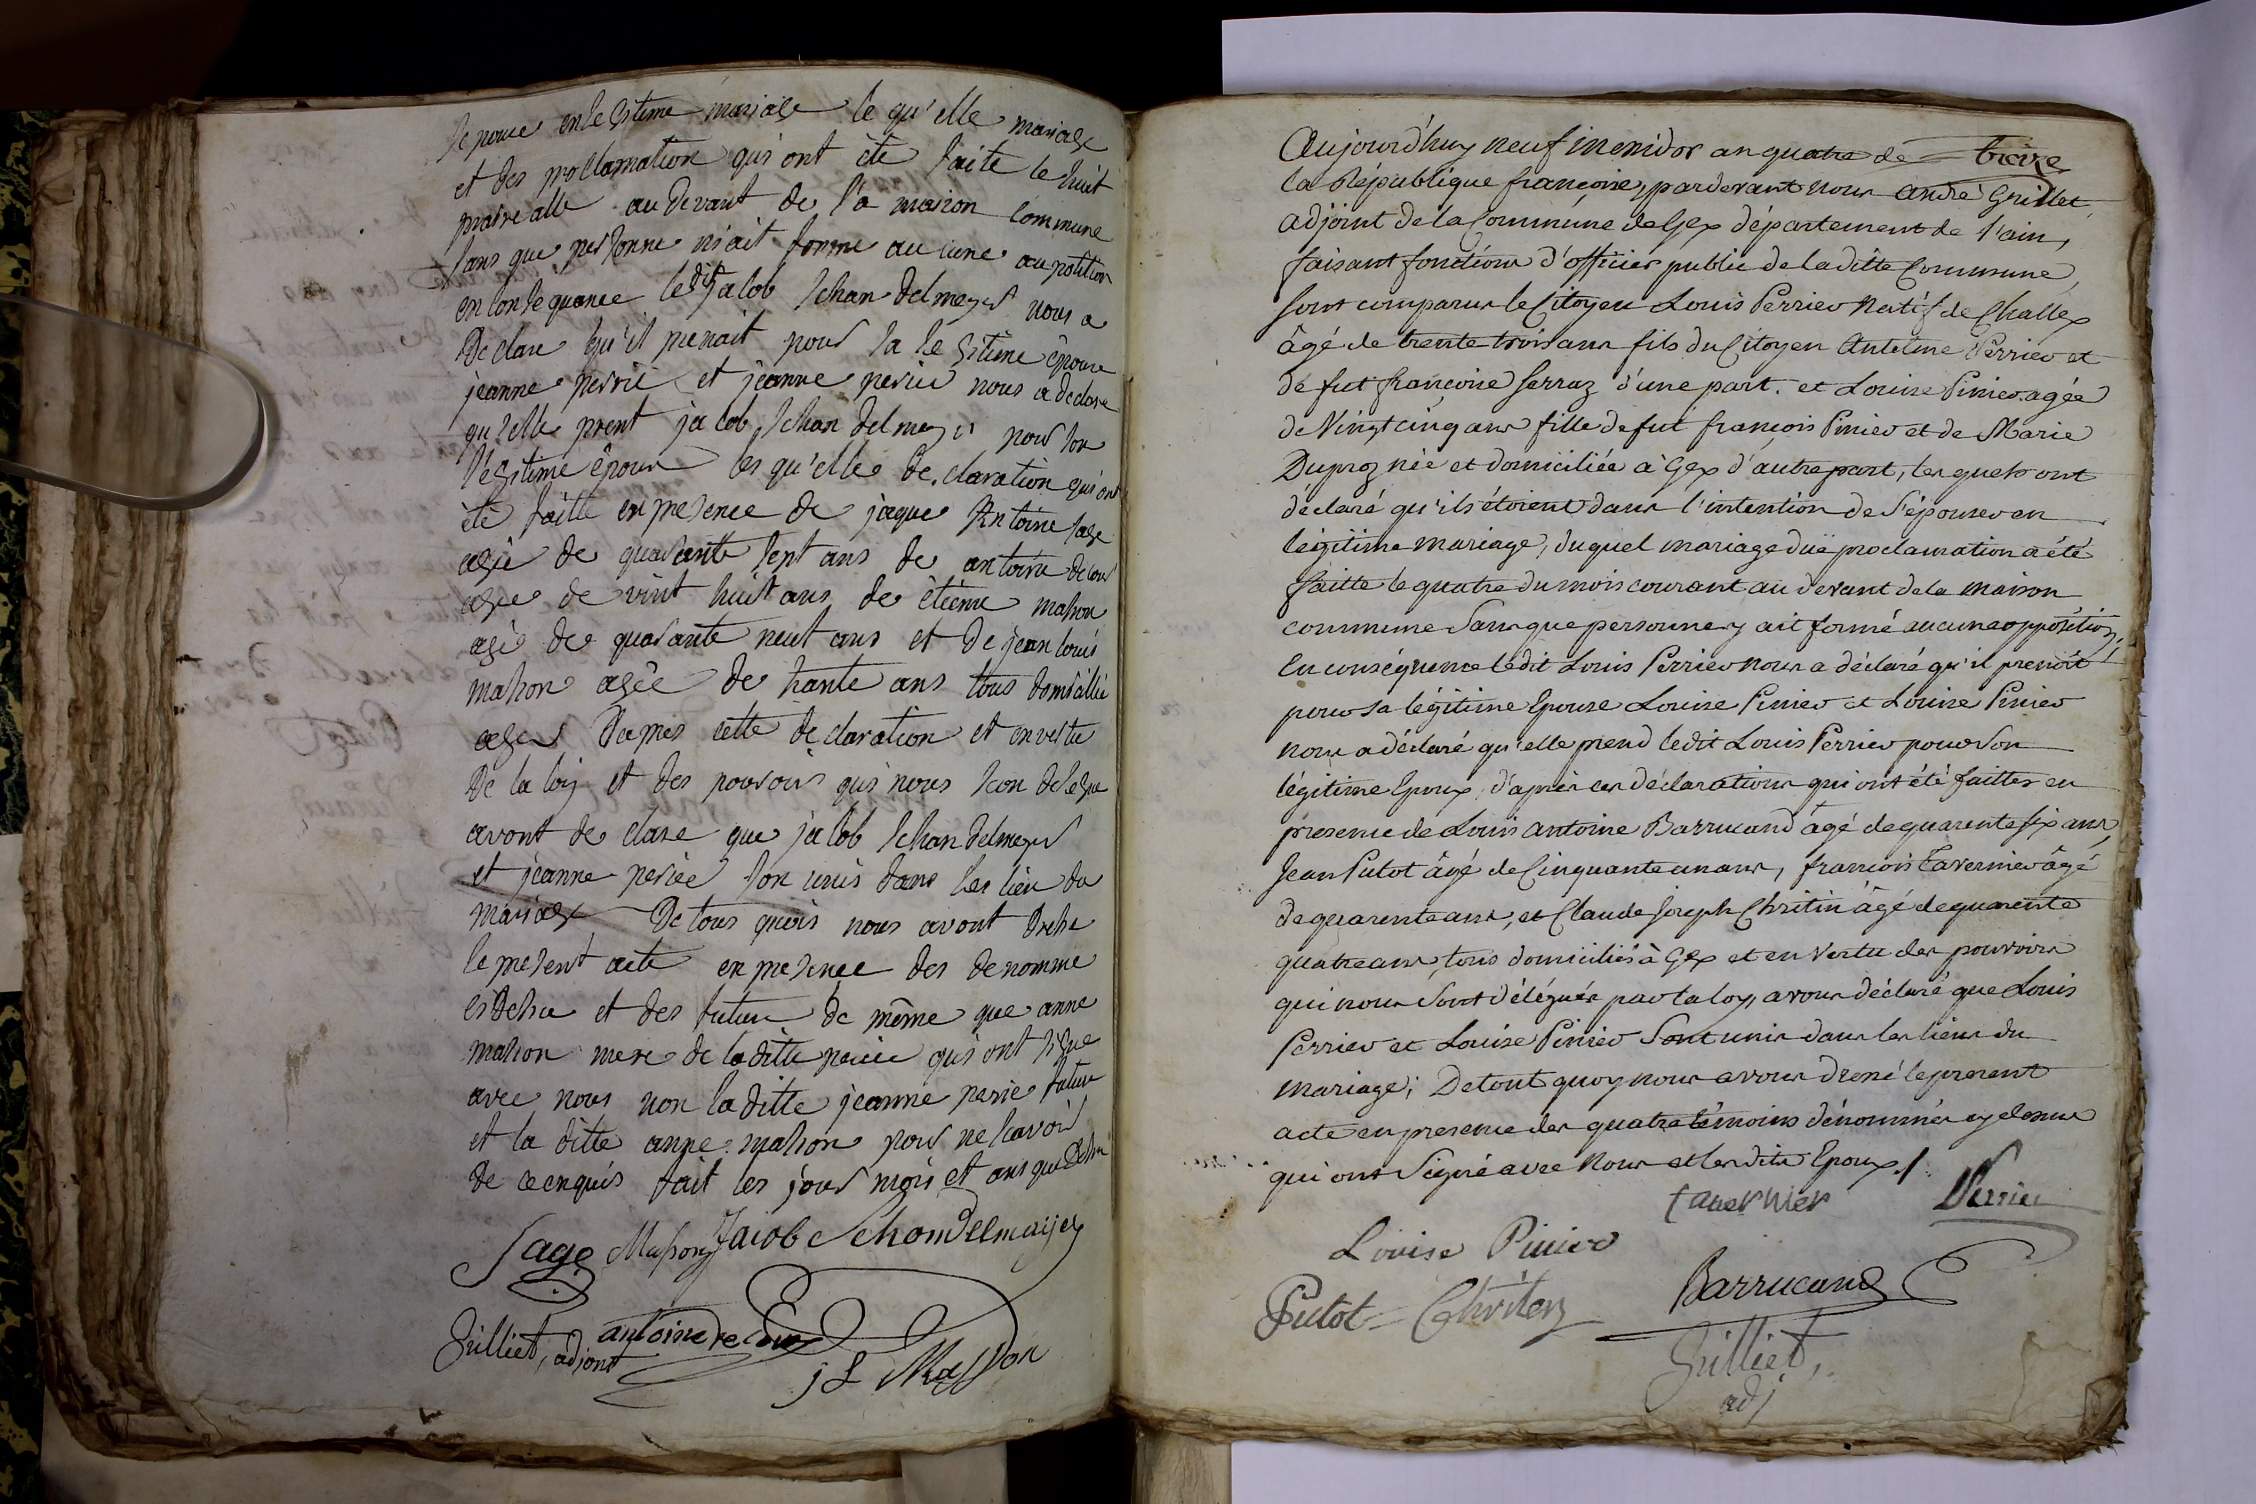 Sepouce en le Gitime mariage le qu'elle mariage
et des proclamation qui ont été faite le huit
prairealle au devant de la maison Commune
sans que personne n'ait formé au cune aupotition
en Consequance ledit Jacob Schandelmeyer nous a
Declare qu'il prenait pour sa le Gitime épouse
jeanne perrié et jeanne perrié nous a declare
qu'elle prent jacob Schandelmeyer pour son
legitime époux les qu'elle de claration qui ont
été faitte en presence de jaque Antoine Sage
agée de quarante sept ans de antoine de cour
agée de vint huit ans de étienne mason
agée de quarante neuf ans et de jean louis
mason agée de trante ans tous domicillié
a gex Daprès cette de claration et en vertu
De la loy et des pouvoirs qui nous son delegue
avont de clare que jacob Schandelmeyer
et jeanne periée son unis dans les lien du
mariage De tous quois nous avont dresse
le present acte en presence des denomme
cidessu et des futur de même que anne
mason mere de la ditte periée qui ont signe
avec nous non la ditte jeanne perie future
et la ditte anne mason pour ne savoir
de ce enquis fait les jour mois et ans que Dessu
Sage Masson Jacob Schondelmaijer
Gilliet, adjont antoine de cour
j L Masson
Aujourd'huy neuf messidor an quatre de treize
la République françoise, pardevant nous André Grillet
adjoint de la Commune de Gex département de l'ain,
faisant fonctions d'officier public de laditte Commune,
sont comparus le Citoyen Louis Perrier natif de Challex
âgé de trente trois ans fils du Citoyen Antelme Perrier et
de fut françoise Serraz d'une part. et Louise Pinier agée
de Vingt cinq ans fille de fut françois Pinier et de Marie
Duproz née et domiciliée à Gex d'autre part, les quels ont
déclaré qu'ils étoient dans l'intention de S'épouser en
légitime mariage, duquel mariage due proclamation a été
faitte le quatre du mois courant au devant de la maison
commune Sans que personne y ait formé aucune opposition,
En conséquence ledit Louis Perrier nous a déclaré qu'il prenoit
pour sa légitime Epouse Louise Pinier et Louise Pinier
nous a déclaré qu'elle prend ledit Louis Perrier pour Son
légitime Epoux, d'après ces déclarations qui ont été faittes en
presence de Louis Antoine Barrucand âgé de quarente six ans,
Jean Putot âgé de Cinquante un ans, françois Tavernier âgé
de quarente ans, et Claude Joseph Chritin âgé de quarente
quatre ans, tous domiciliés à Gex et en Vertu des pouvoirs
qui nous Sont délégués par la loy, avons déclaré que Louis
Perrier et Louise Pinier Sont unis dans les liens du
mariage; De tout quoy nous avons dressé le present
acte en presence des quatre témoins dénommés cy dessus
qui ont Signé avec Nous et les dits Epoux./.
tavernier Perrier
Louise Pinier
Putot Chriten Barrucand
Gilliet,
adj